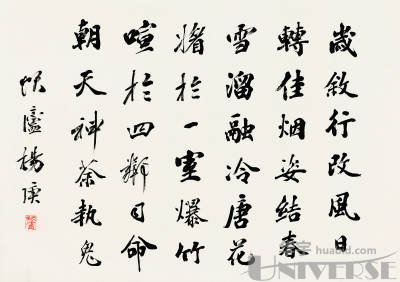 歲敘行改風日
轉佳烟姿結春
雪溜融冷唐花
於一室爆竹
喧於四鄰司命
朝天神荼執鬼
楊
huabid.com
UNIVERSE